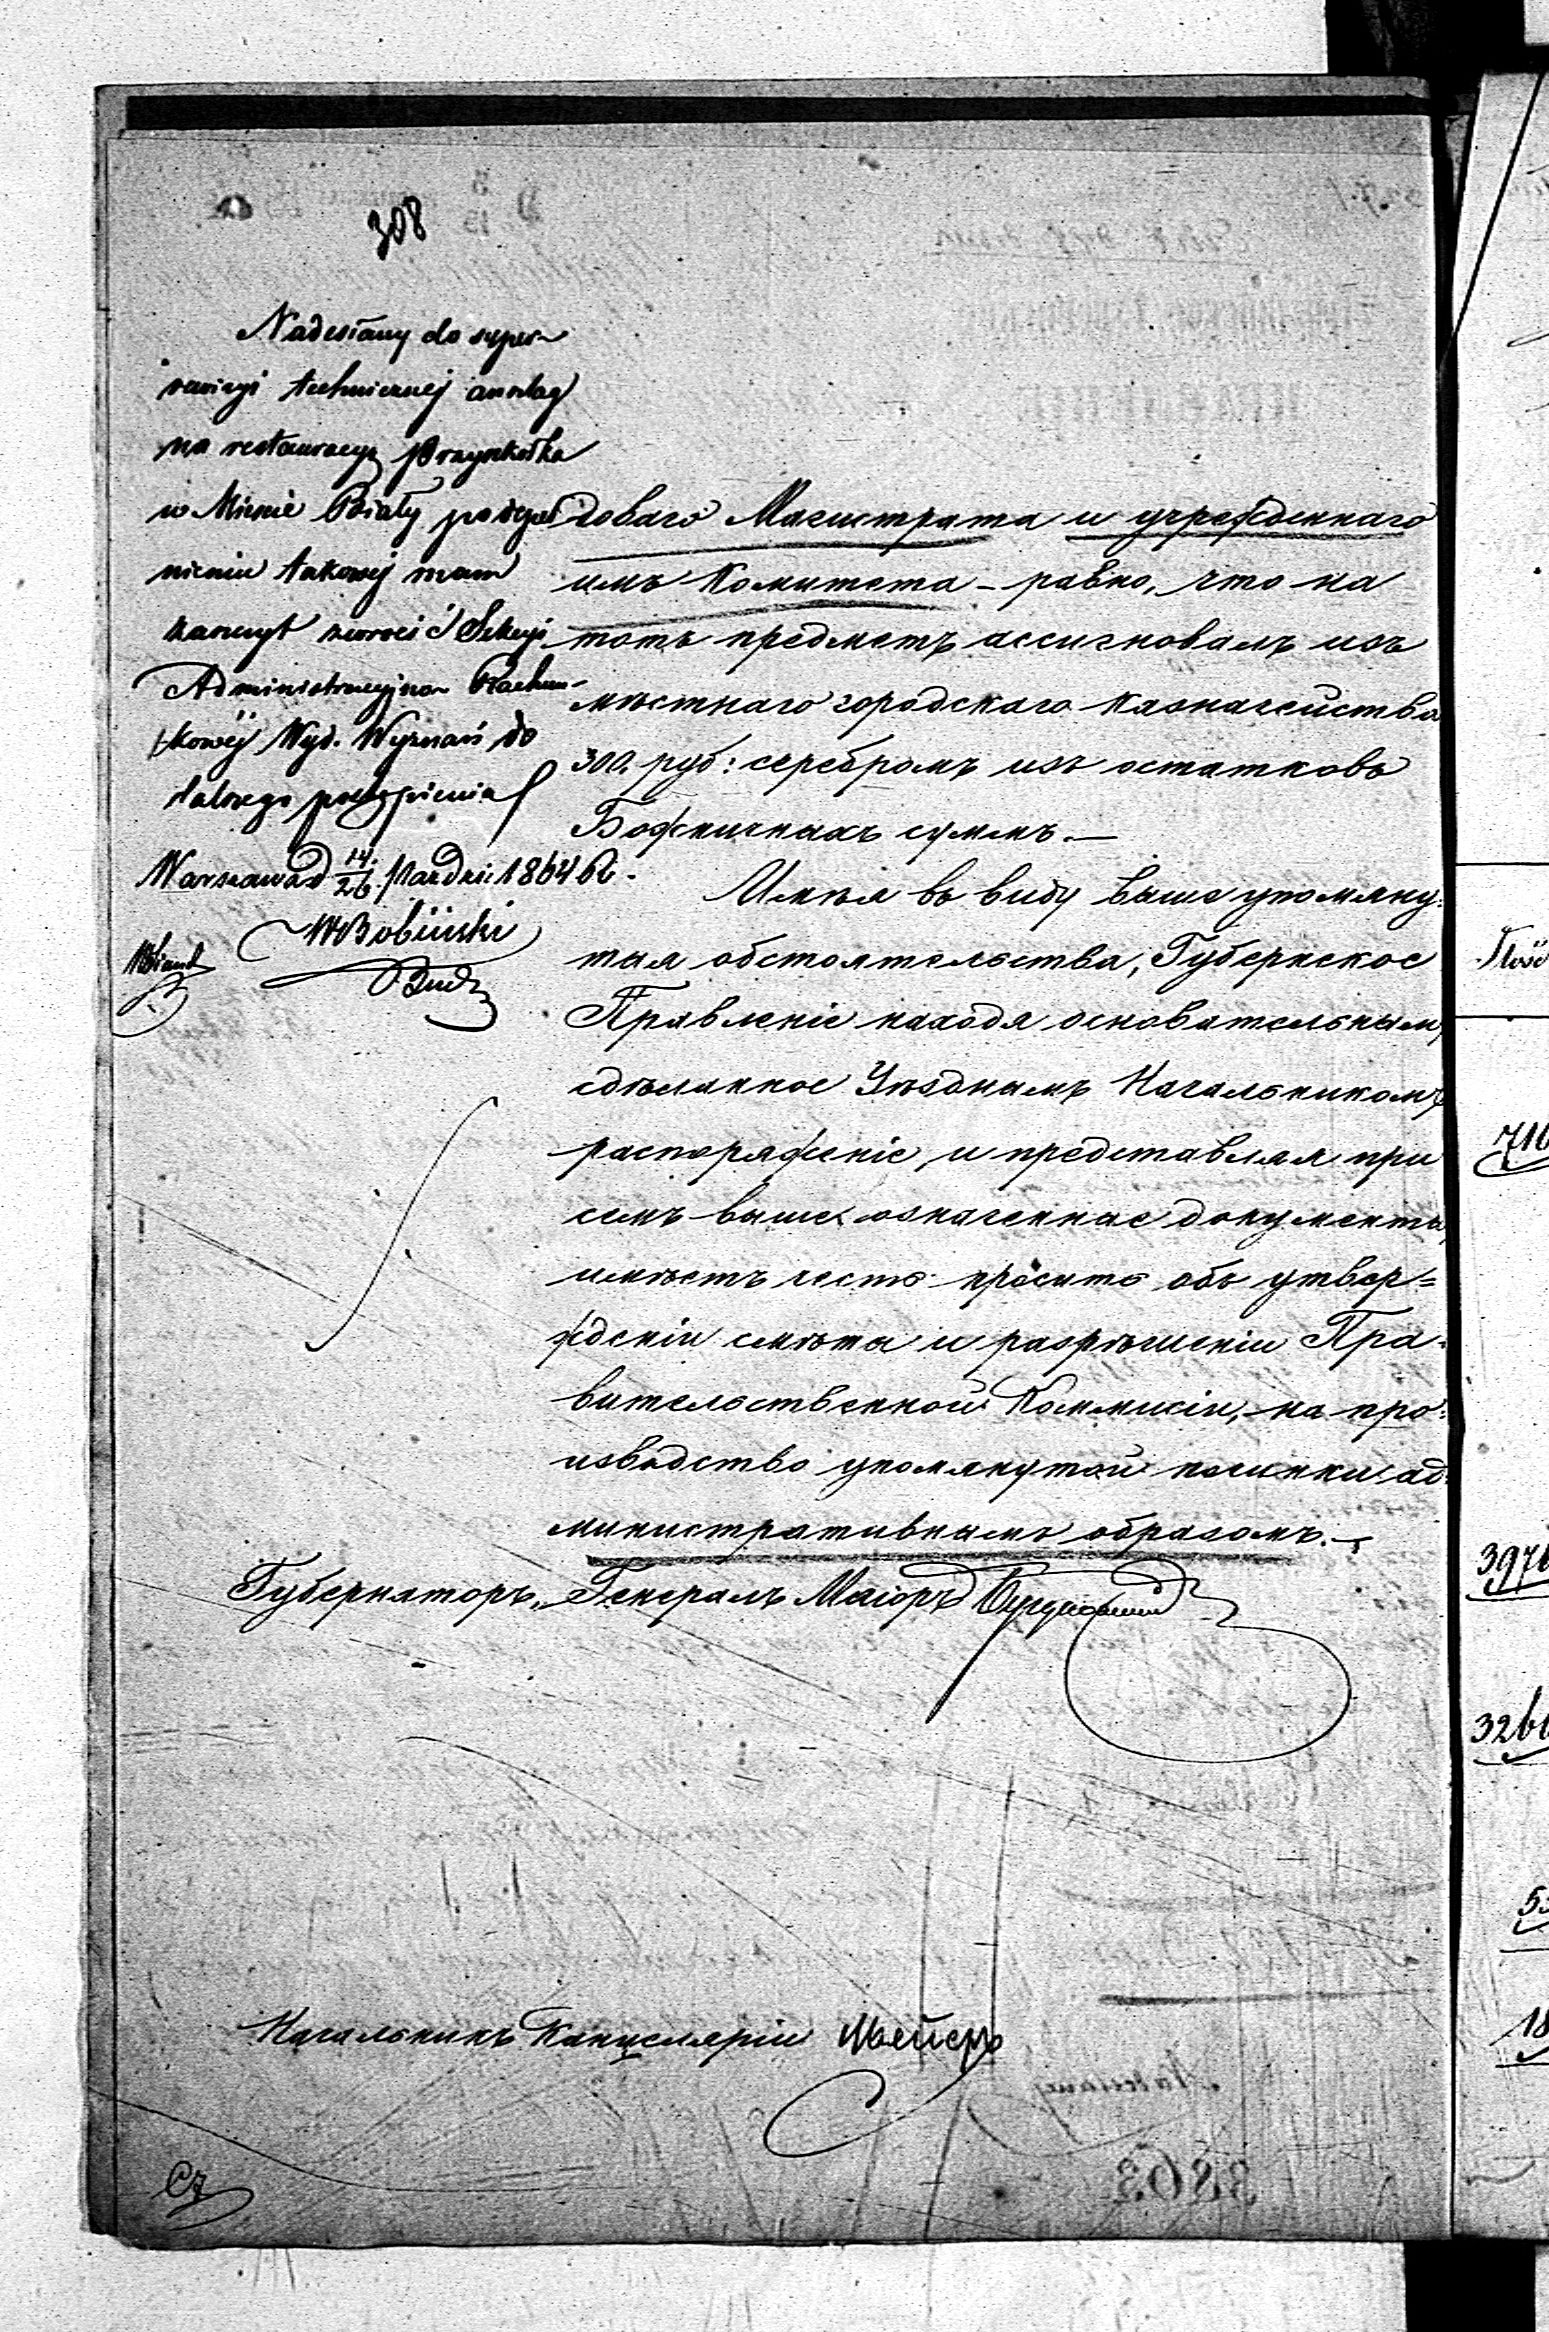 308
Nadesłany do super
rewizyi technicznej anszlag
na restauracyę przyszkółka
w Mieście Biały po dopeł
nieniu takowej mam
zaszczyt zwrócić Sekcyi
Administracyjno Rachun-
kowéj Wyd. Wyznań do
dalszego postąpienia
Warszawa d 14/26 Paździe 1864 R.
WBobiński
Bud
доваго Магистрата и учрежденнаго
имъ Комитета – равно, что на
тотъ предметъ ассигновалъ изъ
мѣстнаго городскаго Казначейства
300. руб: серебромъ изъ остатковъ
Божничныхъ суммъ. —
Имѣя въ виду вышеупомяну:
тыя обстоятельства, Губернское
Правленіе находя основательнымъ,
сдѣланное Уѣзднымъ Начальникомъ
распоряженіе, и представляя при
семъ вышеозначенные документы,
имѣетъ честь просить объ утвер=
жденіи смѣты и разрѣшеніи Пра-
вительственной Коммисіи, на про:
изводство упомянутой починки ад:
министративнымъ образомъ. —
Губернаторъ, Генералъ Маіоръ
Начальникъ Канцеляріи Мейеръ
Cz
716
397
326
5
18